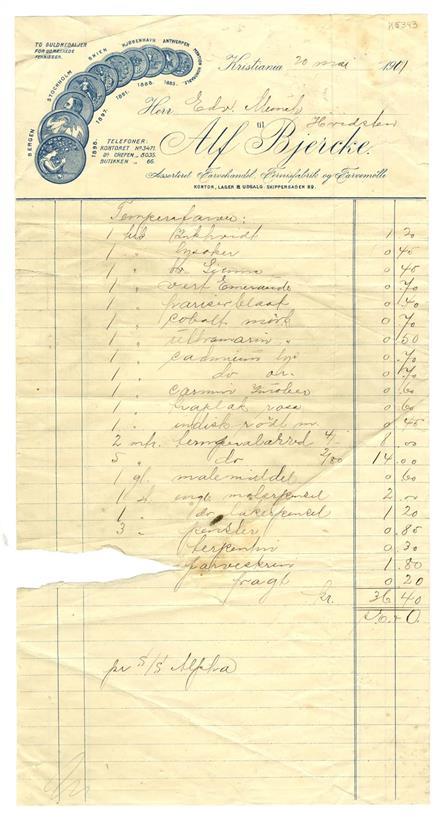 N5393
TO GULDMEDALJER
FOR UDMÆRKEDE
PENSLER.
BERGEN STOCKHOLM SKIEN KJØBENHAVN ANTWERPEN
1898. 1897. 1891. 1888. 1885.
Kristiania 20 mai 1904
Herr Edv. Munch
til Hvidsten
TELEFONER:
KONTORET No. 3471.
CHEFEN „ 8035.
BUTIKKEN „ 66.
Alf Bjercke.
Assorteret Farvehandel, Fernisfabrik og Farvemølle
KONTOR, LAGER & UDSALG: SKIPPERGADEN 29.
Temperafarver:
1 tub Zinkhvidt 1 20
1 „ lysoker 0 45
1 „ br. Sienna 0 45
1 „ vert Emeraude 0 70
1 „ pariserblaat 0 40
1 „ cobolt mørk 0 70
1 „ ultramarin „ 0 50
1 „ cadmium lys 0 70
1 „ do or. 0 70
1 „ carmin 0 60
1 „ kraplak rosa 0 60
1 „ indisk rødt m. 0 45
2 mtr. 4/- 8 00
5 „ do 2/80 14 00
1 gl. malemiddel 0 60
1 st. engl. malerpensel 2 00
1 „ do lakerpensel 1 20
3 „ pensler 0.85
terpentin 0 30
farveskrin 1.80
fragt 0 20
Kr. 36 40
pr S/S Alpha